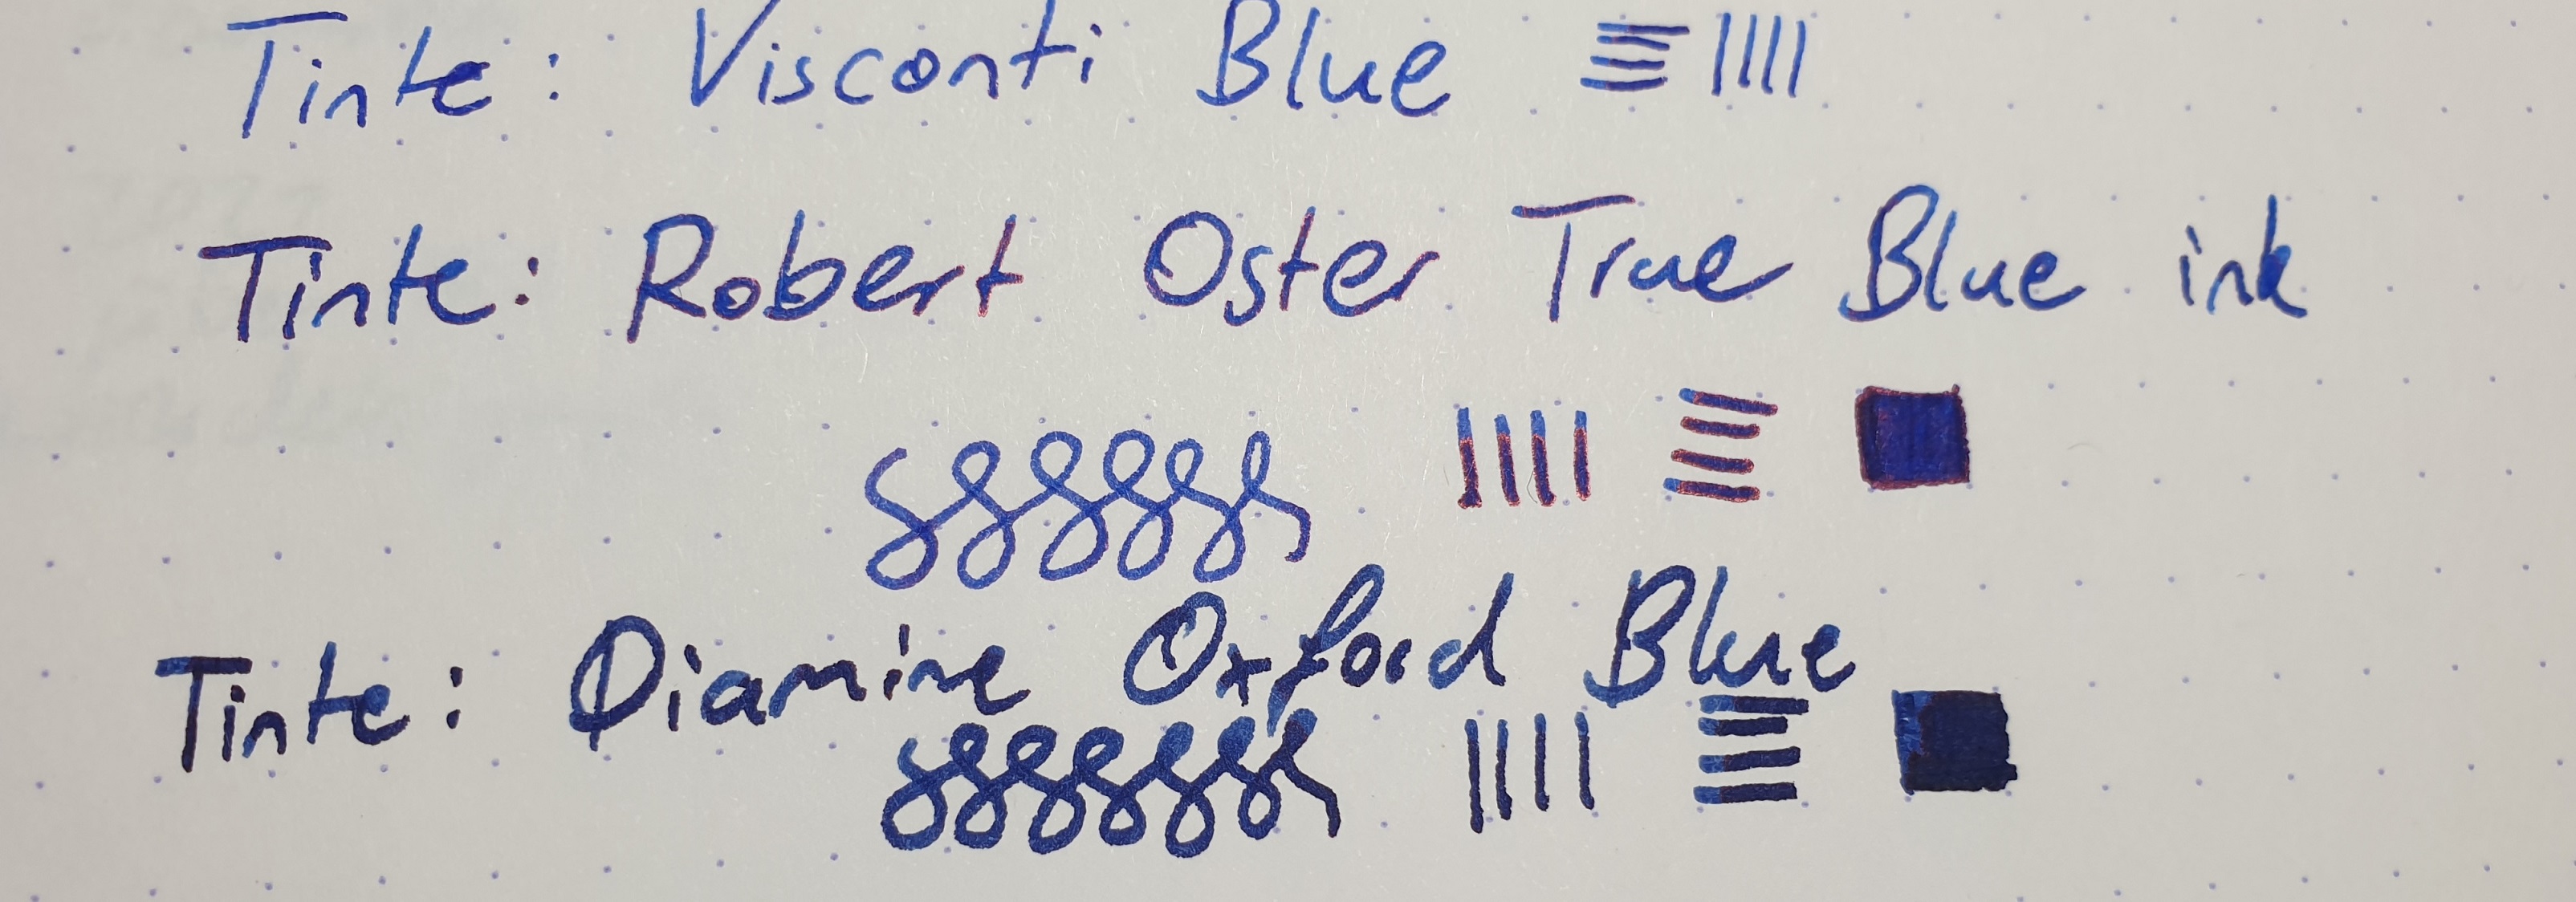 Tinte: Visconti Blue
Tinte: Robert Oster True Blue ink
Tinte: Diamine Oxford Blue